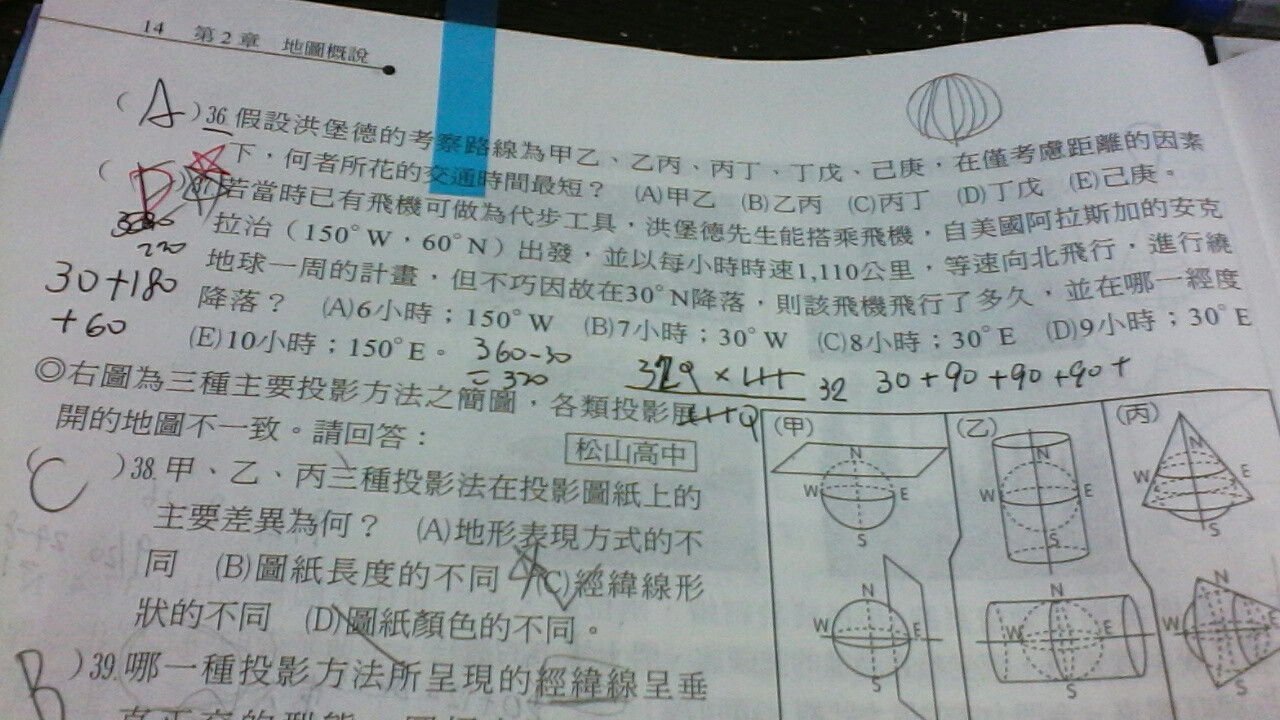 14 第2章 地圖概說
( A )36.假設洪堡德的考察路線為甲乙、乙丙、丙丁、丁戊、己庚，在僅考慮距離的因素
下，何者所花的交通時間最短？ (A)甲乙 (B)乙丙 (C)丙丁 (D)丁戊 (E)己庚。
( D )37.若當時已有飛機可做為代步工具，洪堡德先生能搭乘飛機，自美國阿拉斯加的安克
拉治（150°W，60°N）出發，並以每小時時速1,110公里，等速向北飛行，進行繞
地球一周的計畫，但不巧因故在30°N降落，則該飛機飛行了多久，並在哪一經度
降落？ (A)6小時；150°W (B)7小時；30°W (C)8小時；30°E (D)9小時；30°E
(E)10小時；150°E。
220
30+180
+60
360-30
=320
32
30+90+90+90+
◎右圖為三種主要投影方法之簡圖，各類投影展
開的地圖不一致。請回答：
松山高中
( C )38.甲、乙、丙三種投影法在投影圖紙上的
主要差異為何？ (A)地形表現方式的不
同 (B)圖紙長度的不同 (C)經緯線形
狀的不同 (D)圖紙顏色的不同。
B )39.哪一種投影方法所呈現的經緯線呈垂
(甲)
N
W E
S
N
W E
S
(乙)
N
W E
S
N
W E
S
(丙)
N
W E
S
N
W E
S